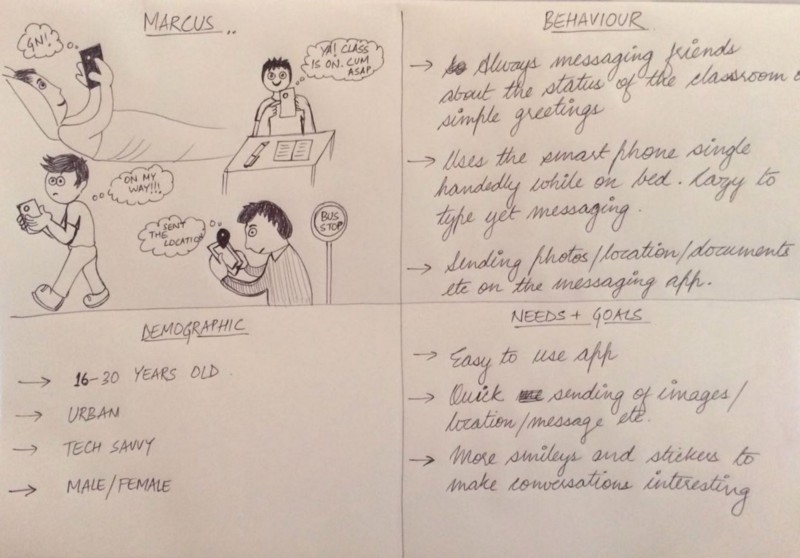 MARCUS..
GN!
YA! CLASS
IS ON. CUM
ASAP
ON MY
WAY!!!
SENT
THE
LOCATION
BUS
STOP
BEHAVIOUR
→ Always messaging friends
about the status of the classroom or
simple greetings
→ Uses the smart phone single
handedly while on bed. Lazy to
type yet messaging.
→ Sending photos/location/documents
etc on the messaging app.
DEMOGRAPHIC
→ 16-30 YEARS OLD.
→ URBAN
→ TECH SAVVY
→ MALE/FEMALE
NEEDS + GOALS
→ Easy to use app
→ Quick sending of images/
location/message etc.
→ More smileys and stickers to
make conversations interesting